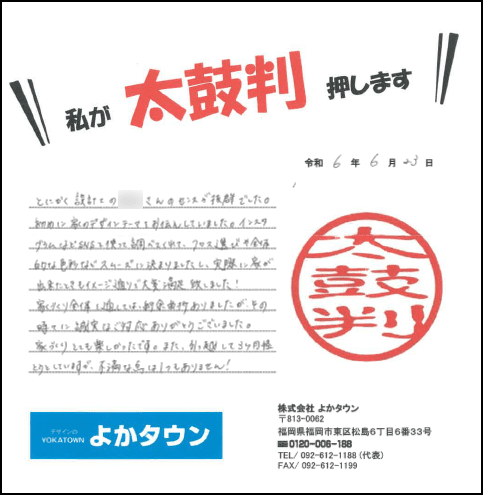 私が 太鼓判 押します
令和 6 年 6 月 23 日
とにかく設計士の さんのセンスが抜群でした。
初めに家のデザインテーマをお伝えしていました。インスタ
グラムなどSNSを使って調べてくれて、クロス選びや全体
的な色味などスムーズに決まりましたし、実際に家が
出来たときもイメージ通りで大変満足致しました!
家づくり全体を通しては、紆余曲折ありましたが、その
時々に誠実なご対応ありがとうございました。
家づくりとても楽しかったです。また、引っ越しして3ヶ月程
たっていますが、不満な点は1つもありません!
太鼓判
デザインの
YOKATOWN よかタウン
株式会社 よかタウン
〒813-0062
福岡県福岡市東区松島6丁目6番33号
0120-006-188
TEL/ 092-612-1188 (代表)
FAX/ 092-612-1199